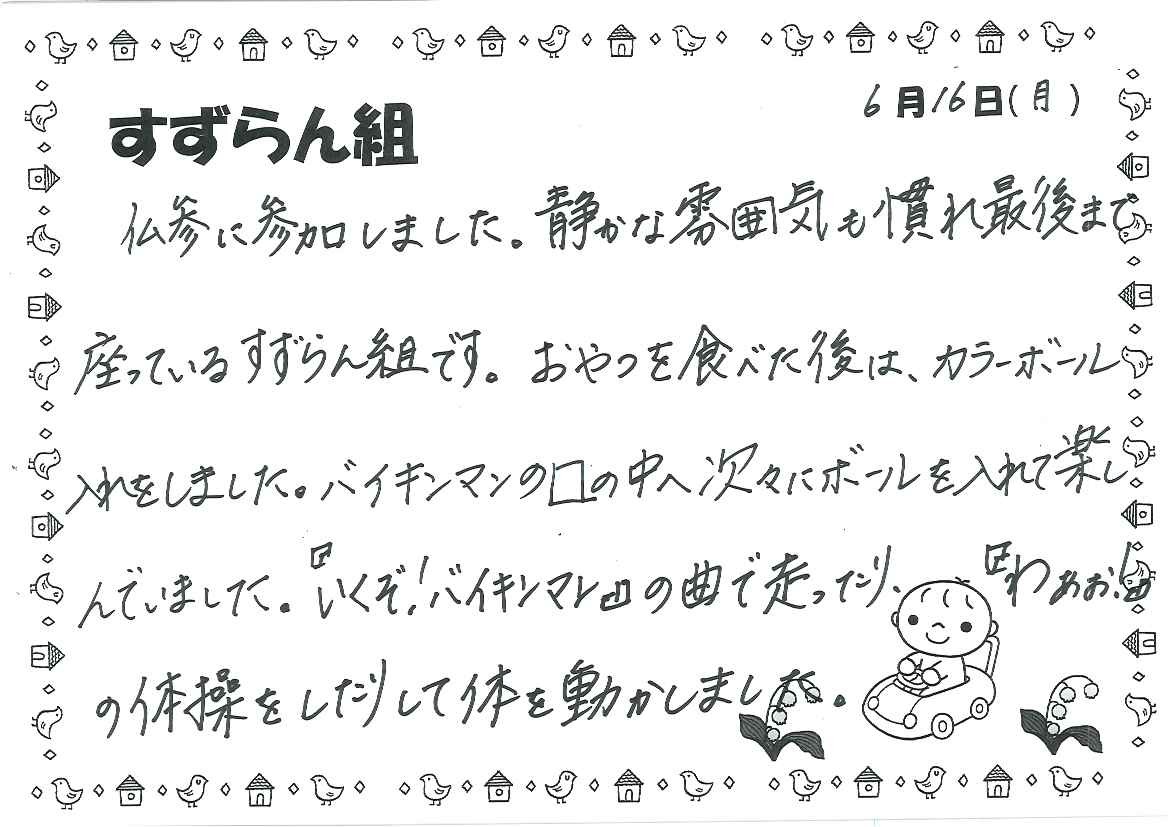 6月16日(月)
すずらん組
仏参に参加しました。静かな雰囲気も慣れ最後まで
座っているすずらん組です。おやつを食べた後は、カラーボール
入れをしました。バイキンマンの口の中へ次々にボールを入れて楽し
んでいました。『いくぞ!バイキンマン』の曲で走ったり、『わぁお!』
の体操をしたりして体を動かしました。